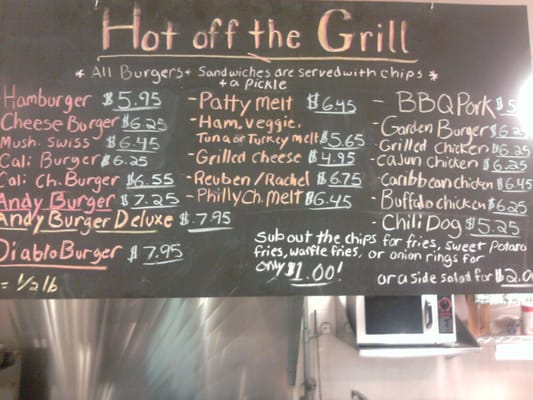 Hot off the Grill
* All Burgers + Sandwiches are served with chips *
+ a pickle
Hamburger $5.95
Cheese Burger $6.25
Mush. Swiss $6.45
Cali Burger $6.25
Cali Ch. Burger $6.55
Andy Burger $7.25
Andy Burger Deluxe $7.95
Diablo Burger $7.95
= 1/2 lb
- Patty Melt $6.45
- Ham, Veggie,
Tuna or Turkey melt $5.65
- Grilled Cheese $4.95
- Reuben/Rachel $6.75
- Philly Ch. Melt $6.45
- BBQ Pork $5
- Garden Burger $6.2
- Grilled Chicken $6.25
- Cajun Chicken $6.25
- Caribbean chicken $6.45
- Buffalo chicken $6.25
- Chili Dog $5.25
Sub out the chips for fries, sweet potato
fries, waffle fries, or onion rings for
only $1.00!
or a side salad for $2.0